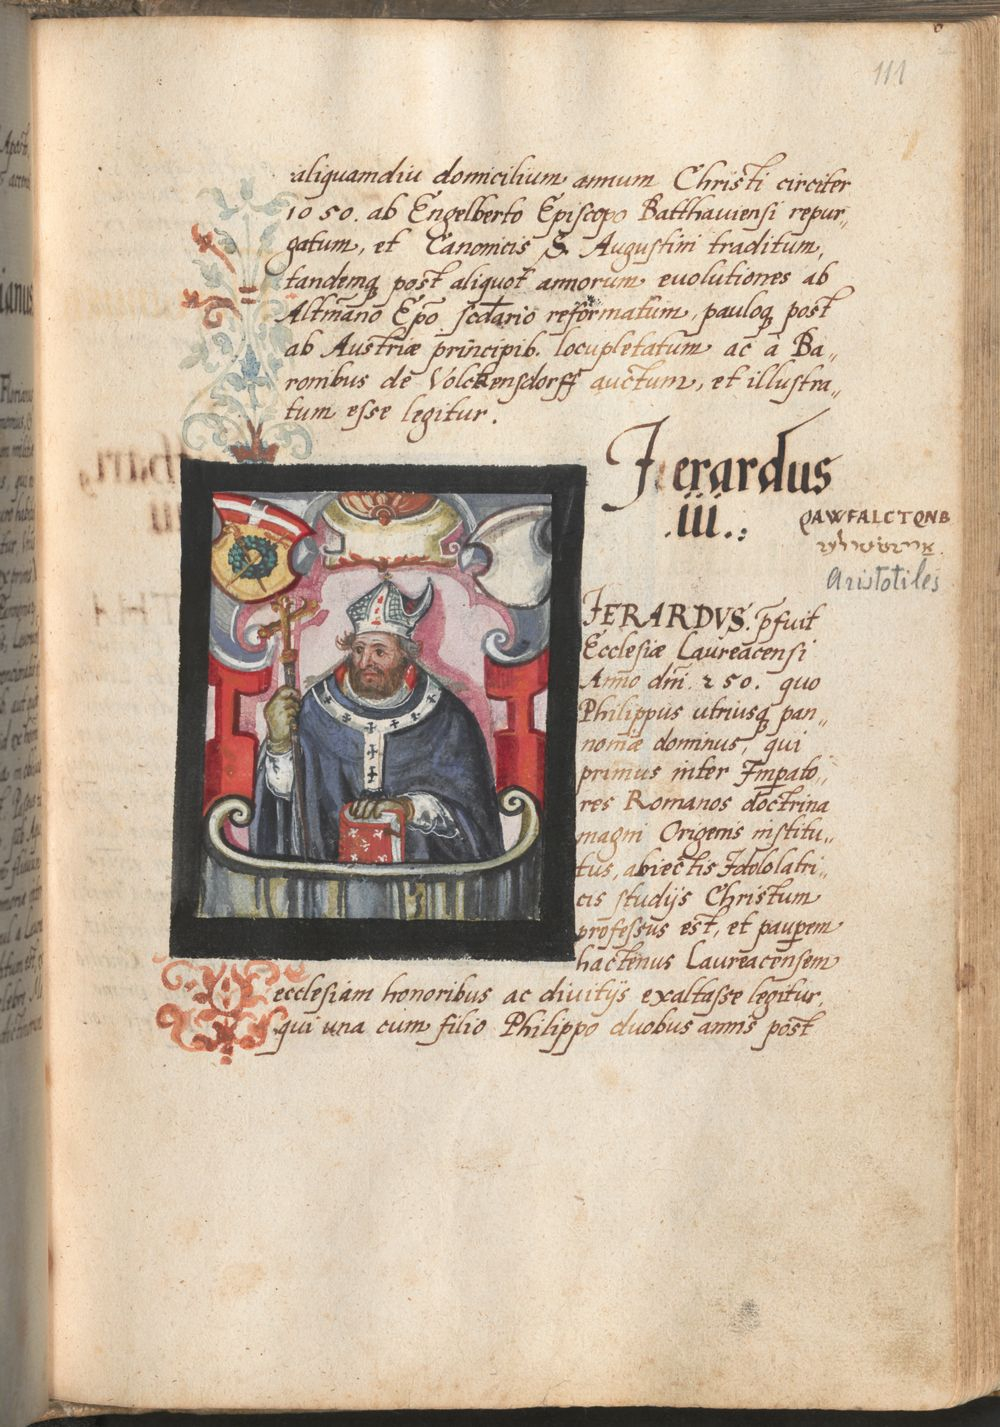 111
aliquamdiu domicilium annum Christi circiter
1050. ab Engelberto Episcopo Batthauiensi repur„
gatum, et Canonicis S. Augustini traditum,
tandemq post aliquot annorum euolutiones ab
Altmano Epo scdario reformatum, pauloq post
ab Austriæ principib. locupletatum ac à Ba„
ronibus de Volckensdorff auctum, et illustra„
tum esse legitur.
Jerardus
.iii.:
QAWFALCTQNB
Aristotiles
JERARDVS. pfuit
Ecclesiæ Laureacensi
Anno dni. 250. quo
Philippus utriusq pan„
noniæ dominus, qui
primus inter Impato„
res Romanos doctrina
magni Origenis institu„
tus, abiectis Idololatri„
cis studijs Christum
professus est, et paupem
hactenus Laureacensem
ecclesiam honoribus ac diuitijs exaltasse legitur,
qui una cum filio Philippo duobus annis post